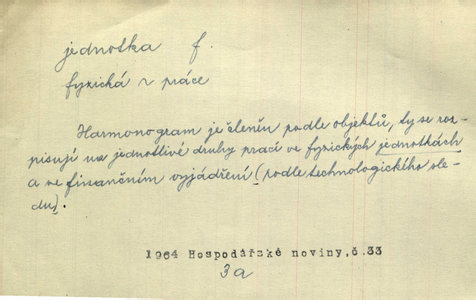 jednotka f.
fyzická r práce
Harmonogram je členěn podle objektů, ty se roz-
pisují na jednotlivé druhy prací ve fyzických jednotkách
a ve finančním vyjádření (podle technologického sle-
du).
1964 Hospodářské noviny,č.33
3a